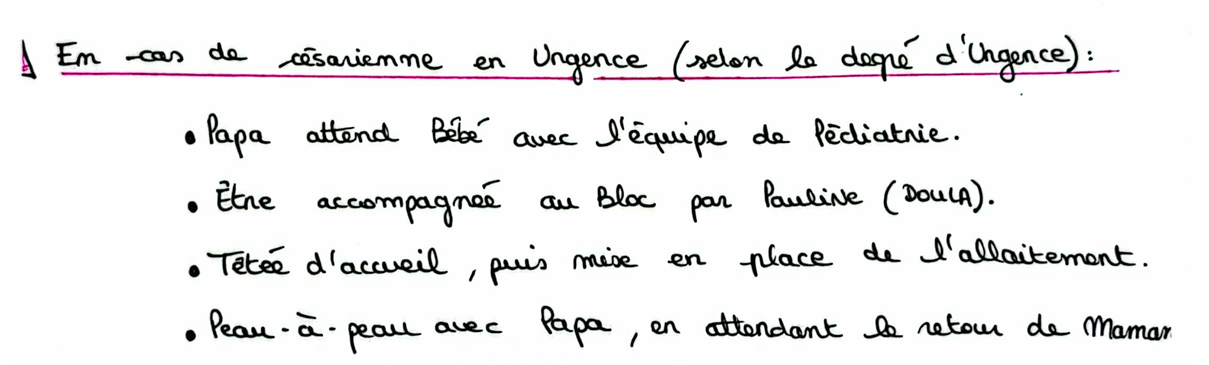 En cas de césarienne en Urgence (selon le degré d'Urgence):
• Papa attend Bébé avec l'équipe de Pédiatrie.
• Être accompagnée au Bloc par Pauline (DOULA).
• Tétée d'accueil, puis mise en place de l'allaitement.
• Peau-à-peau avec Papa, en attendant le retour de Maman